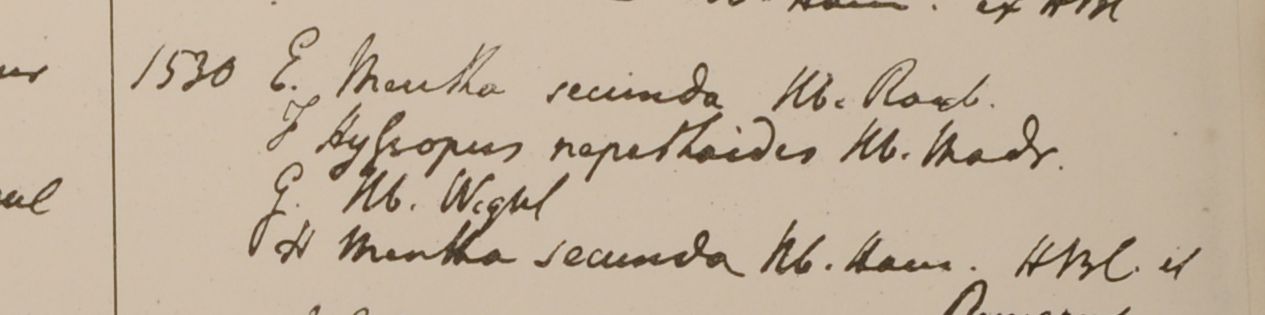 Ham. ex HBl
1530 E. Mentha secunda Hb. Roxb.
F Hyssopus nepethoides Hb. Madr.
G. Hb. Wight
H Mentha secunda Hb. Ham. HBl. et